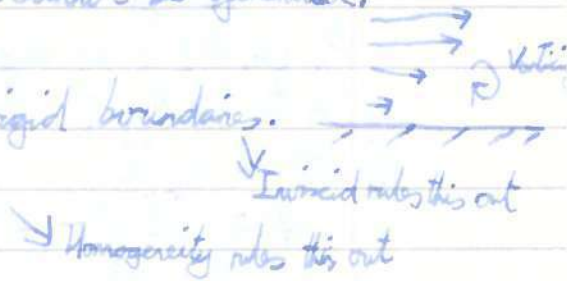 Vortici
rigid boundaries.
Inviscid rules this out
Homogeneity rules this out